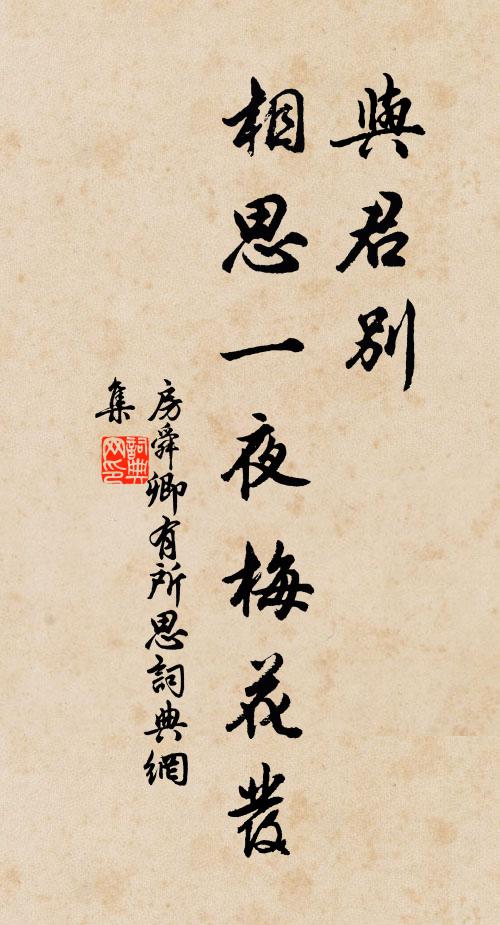 與君別
相思一夜梅花發
房舜卿有所思詞典網
集
詞典
网印